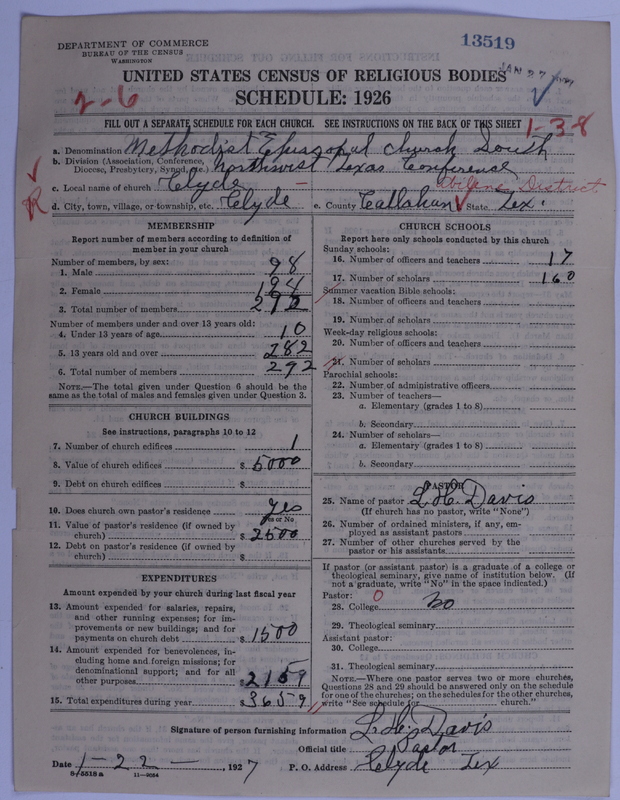 DEPARTMENT OF COMMERCE
BUREAU OF THE CENSUS
WASHINGTON
13519
JAN 27 1927
UNITED STATES CENSUS OF RELIGIOUS BODIES
2-6
SCHEDULE: 1926
FILL OUT A SEPARATE SCHEDULE FOR EACH CHURCH. SEE INSTRUCTIONS ON THE BACK OF THIS SHEET
1-3-8
a. Denomination Methodist Episcopal Church South
b. Division (Association, Conference, Diocese, Presbytery, Synod, etc.) Northwest Texas Conference
Abilene District
c. Local name of church Clyde
R
d. City, town, village, or township, etc. Clyde e. County Callahan State Tex.
MEMBERSHIP
Report number of members according to definition of
member in your church
Number of members, by sex:
1. Male 98
2. Female 194
3. Total number of members 292
Number of members under and over 13 years old:
4. Under 13 years of age 10
5. 13 years old and over 282
6. Total number of members 292
NOTE.—The total given under Question 6 should be the
same as the total of males and females given under Question 3.
CHURCH BUILDINGS
See instructions, paragraphs 10 to 12
7. Number of church edifices 1
8. Value of church edifices $ 5000
9. Debt on church edifices $
10. Does church own pastor's residence yes
Yes or No
11. Value of pastor's residence (if owned by
church) $ 2500
12. Debt on pastor's residence (if owned by
church) $
EXPENDITURES
Amount expended by your church during last fiscal year
13. Amount expended for salaries, repairs,
and other running expenses; for im-
provements or new buildings; and for
payments on church debt $ 1500
14. Amount expended for benevolences, in-
cluding home and foreign missions; for
denominational support; and for all
other purposes $ 2159
15. Total expenditures during year $ 3659
CHURCH SCHOOLS
Report here only schools conducted by this church
Sunday schools:
16. Number of officers and teachers 17
17. Number of scholars 160
Summer vacation Bible schools:
18. Number of officers and teachers
19. Number of scholars
Week-day religious schools:
20. Number of officers and teachers
21. Number of scholars
Parochial schools:
22. Number of administrative officers
23. Number of teachers—
a. Elementary (grades 1 to 8)
b. Secondary
24. Number of scholars—
a. Elementary (grades 1 to 8)
b. Secondary
PASTOR
25. Name of pastor L. H. Davis
(If church has no pastor, write "None")
26. Number of ordained ministers, if any, em-
ployed as assistant pastors
27. Number of other churches served by the
pastor or his assistants
If pastor (or assistant pastor) is a graduate of a college or
theological seminary, give name of institution below. (If
not a graduate, write "No" in the space indicated.)
Pastor: 0
28. College No
29. Theological seminary
Assistant pastor:
30. College
31. Theological seminary
NOTE.—Where one pastor serves two or more churches,
Questions 28 and 29 should be answered only on the schedule
for one of the churches; on the schedules for the other churches,
write "See schedule for church."
Signature of person furnishing information L. H. Davis
Official title Pastor
Date 1-22-, 1927 P. O. Address Clyde Tex
8-5518 a 11-9054